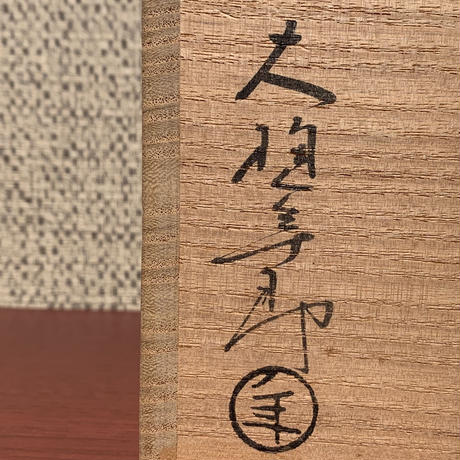 大樋年郎
年